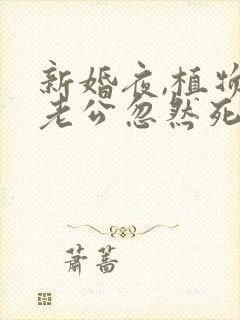 新婚夜,植物
老公忽然死
萧蒿